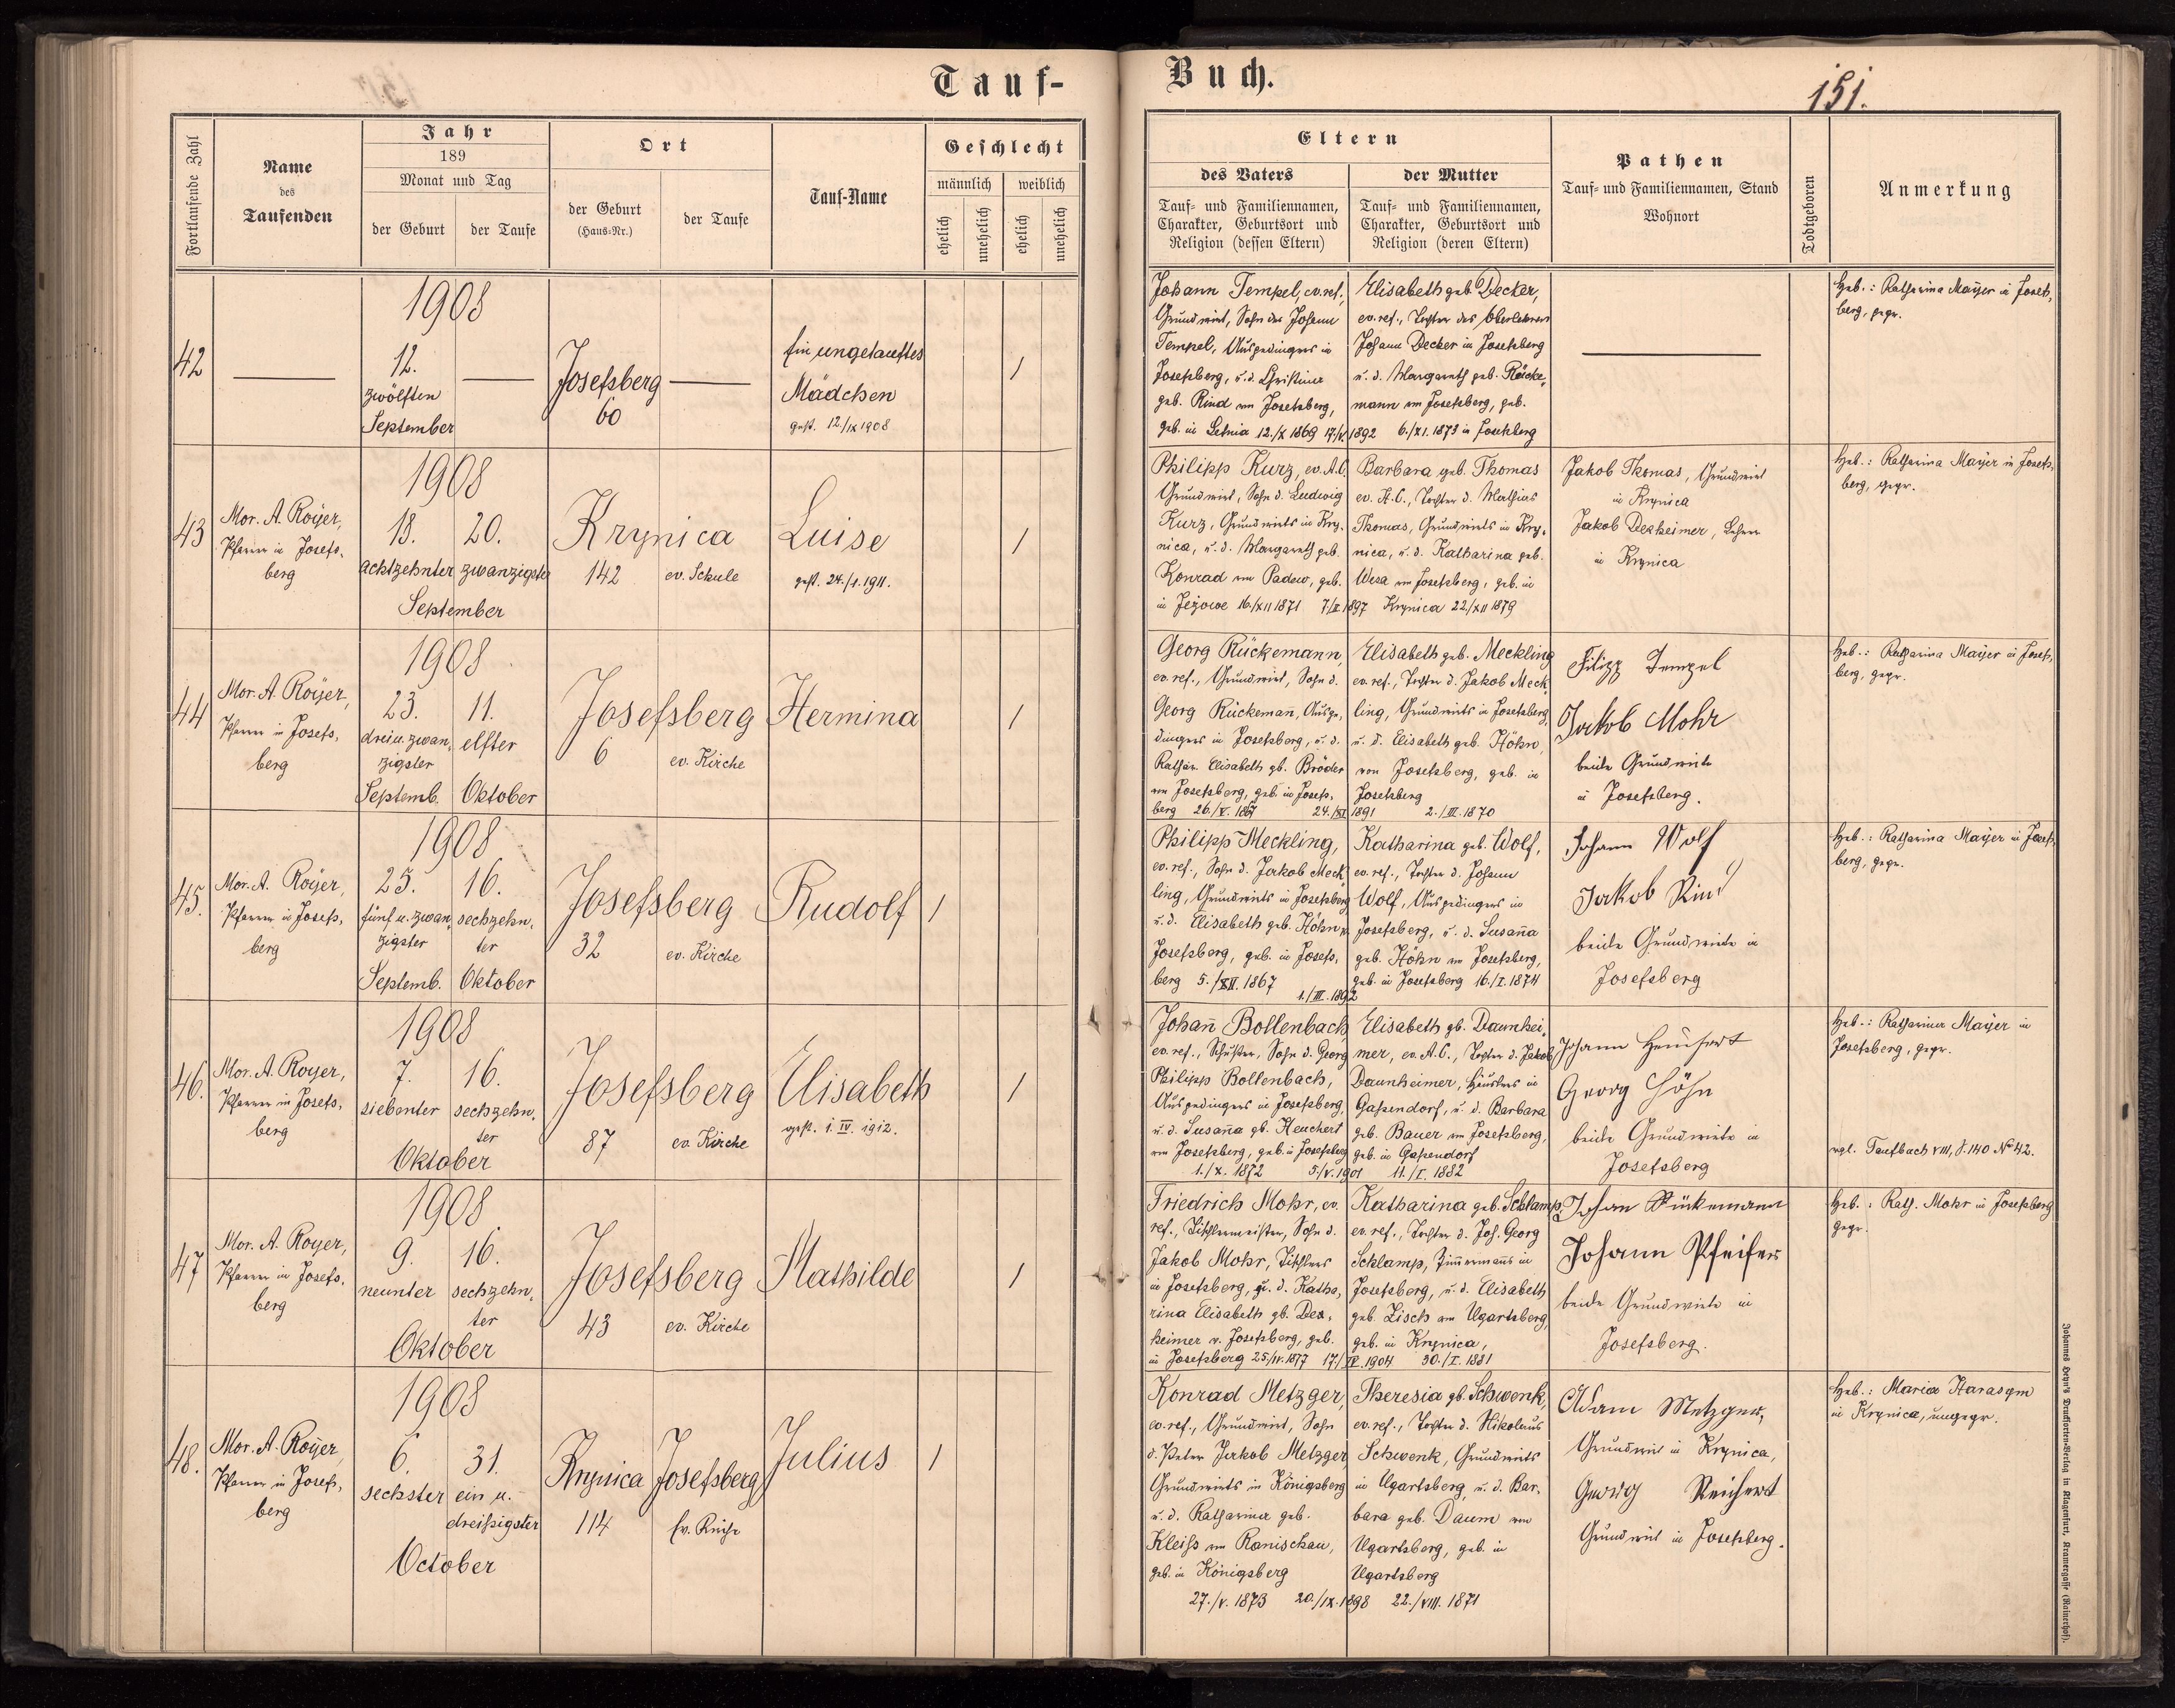 Tauf-
Buch.
151.
Fortlaufende Zahl
Name
des
Taufenden
Jahr
189
Monat und Tag
der Geburt
der Taufe
Ort
der Geburt
(Haus-Nr.)
der Taufe
Tauf-Name
Geschlecht
männlich
weiblich
ehelich
unehelich
ehelich
unehelich
Eltern
des Vaters
Tauf- und Familiennamen,
Charakter, Geburtsort und
Religion (dessen Eltern)
der Mutter
Tauf- und Familiennamen,
Charakter, Geburtsort und
Religion (deren Eltern)
Pathen
Tauf- und Familiennamen, Stand
Wohnort
Todtgeboren
Anmerkung
42
1908
12.
zwölften
September
Josefsberg
60
Ein ungetauftes
Mädchen
gest. 12./IX 1908
/
Johann Tempel, ev. ref.,
Grundwirt, Sohn des Johann
Tempel, Ausgedingers in
Josefsberg, u. d. Christine
geb. Rind von Josefsberg,
geb. in Letnia 12./X 1869
Elisabeth geb. Decker,
ev. ref., Tochter des Oberlehrers
Johann Decker in Josefsberg
u. d. Margareth geb. Rücke-
mann von Josefsberg, geb.
1892 6./XI. 1873 in Josefsberg
Heb.: Katharina Mayer in Josefs-
berg, gepr.
43
Mor. A. Royer,
Pfarrer in Josefs-
berg
1908
18. 20.
achtzehnter zwanzigster
September
Krynica
142 ev. Schule
Luise
gest. 24./1. 1911.
/
Philipp Kurz, ev. A.C.
Grundwirt, Sohn d. Ludwig
Kurz, Grundwirts in Kry-
nica, u. d. Margareth geb.
Konrad von Padew, geb.
in Jeżowe 16./XII 1871 7/II 1897
Barbara geb. Thomas
ev. A.C., Tochter d. Mathias
Thomas, Grundwirts in Kry-
nica, u. d. Katharina geb.
Wesa von Josefsberg, geb. in
Krynica 22/XII 1879
Jakob Thomas, Grundwirt
in Krynica
Jakob Dexheimer, Lehrer
in Krynica
Heb.: Katharina Mayer in Josefs-
berg, gepr.
44
Mor. A. Royer,
Pfarrer in Josefs-
berg
1908
23. 11.
dreiu. zwan- elfter
zigster
Septemb. Oktober
Josefsberg
6 ev. Kirche
Hermina
/
Georg Rückemann,
ev. ref., Grundwirt, Sohn d.
Georg Rückemañ, Ausge-
dingers in Josefsberg, u. d.
Kathar. Elisabeth gb. Bröder
von Josefsberg, geb. in Josefs-
berg 26./V. 1867 24./XI 1891
Elisabeth geb. Meckling
ev. ref., Tochter d. Jakob Meck-
ling, Grundwirts in Josefsberg,
u. d. Elisabeth geb. Höhn,
von Josefsberg, geb. in
Josefsberg
2./III. 1870
Filipp Tempel
Jakob Mohr
beide Grundwirte
in Josefsberg.
Heb.: Katharina Mayer in Josefs-
berg, gepr.
45.
Mor. A. Royer,
Pfarrer in Josefs-
berg
1908
25. 16.
fünf u. zwan- sechzehn-
zigster ter
Septemb. Oktober
Josefsberg
32 ev. Kirche
Rudolf
/
Philipp Meckling,
ev. ref., Sohn d. Jakob Meck-
ling, Grundwirts in Josefsberg
u. d. Elisabeth geb. Höhn v.
Josefsberg, geb. in Josefs-
berg 5./XII. 1867
1./III. 1892
Katharina geb. Wolf,
ev. ref., Tochter d. Johann
Wolf, Ausgedingers in
Josefsberg, u. d. Susaña
geb. Höhn von Josefsberg,
geb. in Josefsberg 16./I. 1874
Johann Wolf
Jakob Rind
beide Grundwirte in
Josefsberg
Heb.: Katharina Mayer in Josefs-
berg, gepr.
46.
Mor. A. Royer,
Pfarrer in Josefs-
berg
1908
7. 16.
siebenter sechzehn-
ter
Oktober
Josefsberg
87 ev. Kirche
Elisabeth
gest. 1. IV. 1912.
/
Johañ Bollenbach
ev. ref., Schuster, Sohn d. Georg
Philipp Bollenbach,
Ausgedingers in Josefsberg,
u. d. Susaña gb. Heuchert
von Josefsberg, geb. in Josefsberg
1./X. 1872 5./V. 1901
Elisabeth gb. Daunhei-
mer, ev. A.C., Tochter d. Jakob
Daunheimer, Häuslers in
Gassendorf, u. d. Barbara
geb. Bauer von Josefsberg,
geb. in Gassendorf
11./I. 1882
Johann
Georg Höhn
beide Grundwirte in
Josefsberg
Heb.: Katharina Mayer in
Josefsberg, gepr.
vgl. Taufbuch VIII, S. 140 No 42.
47
Mor. A. Royer,
Pfarrer in Josefs-
berg
1908
9. 16.
neunter sechzehn-
ter
Oktober
Josefsberg
43 ev. Kirche
Mathilde
/
Friedrich Mohr, ev.
ref., Tischlermeister, Sohn d.
Jakob Mohr, Tischlers
in Josefsberg, u. d. Katha-
rina Elisabeth gb. Dex-
heimer v. Josefsberg, geb.
in Josefsberg 25/IV. 1877 17./IV. 1904
Katharina geb. Schlamp,
ev. ref., Tochter d. Joh. Georg
Schlamp, Zim̄ermañs in
Josefsberg, u. d. Elisabeth
geb. Lisch von Ugartsberg,
geb. in Krynica,
30./I. 1881
Johan Rükemann
Johann Pfeifer
beide Grundwirte in
Josefsberg.
Heb.: Kath. Mohr in Josefsberg
gepr.
48.
Mor. A. Royer
Pfarrer in Josefs-
berg
1908
6. 31.
sechster ein u.
dreißigster
October
Krynica Josefsberg
114 Ev. Kirche
Julius
/
Konrad Metzger,
ev. ref., Grundwirt, Sohn
d. Peter Jakob Metzger
Grundwirts in Königsberg
u. d. Katharina geb.
Kleiss von Ranischau,
geb. in Königsberg
27./V. 1873 20./IX. 1898
Theresia gb. Schwenk,
ev. ref., Tochter d. Nikolaus
Schwenk, Grundwirts
in Ugartsberg, u. d. Bar-
bara geb. Daum von
Ugartsberg, geb. in
Ugartsberg
22./VIII. 1871
Adam Metzger,
Grundwirt in Krynica,
Georg Reichert
Grundwirt in Josefsberg.
Heb.: Maria Harasym
in Krynica, ungepr.
Johannes Heyn's Drucksorten-Verlag in Klagenfurt, Kramergasse (Rainerhof).